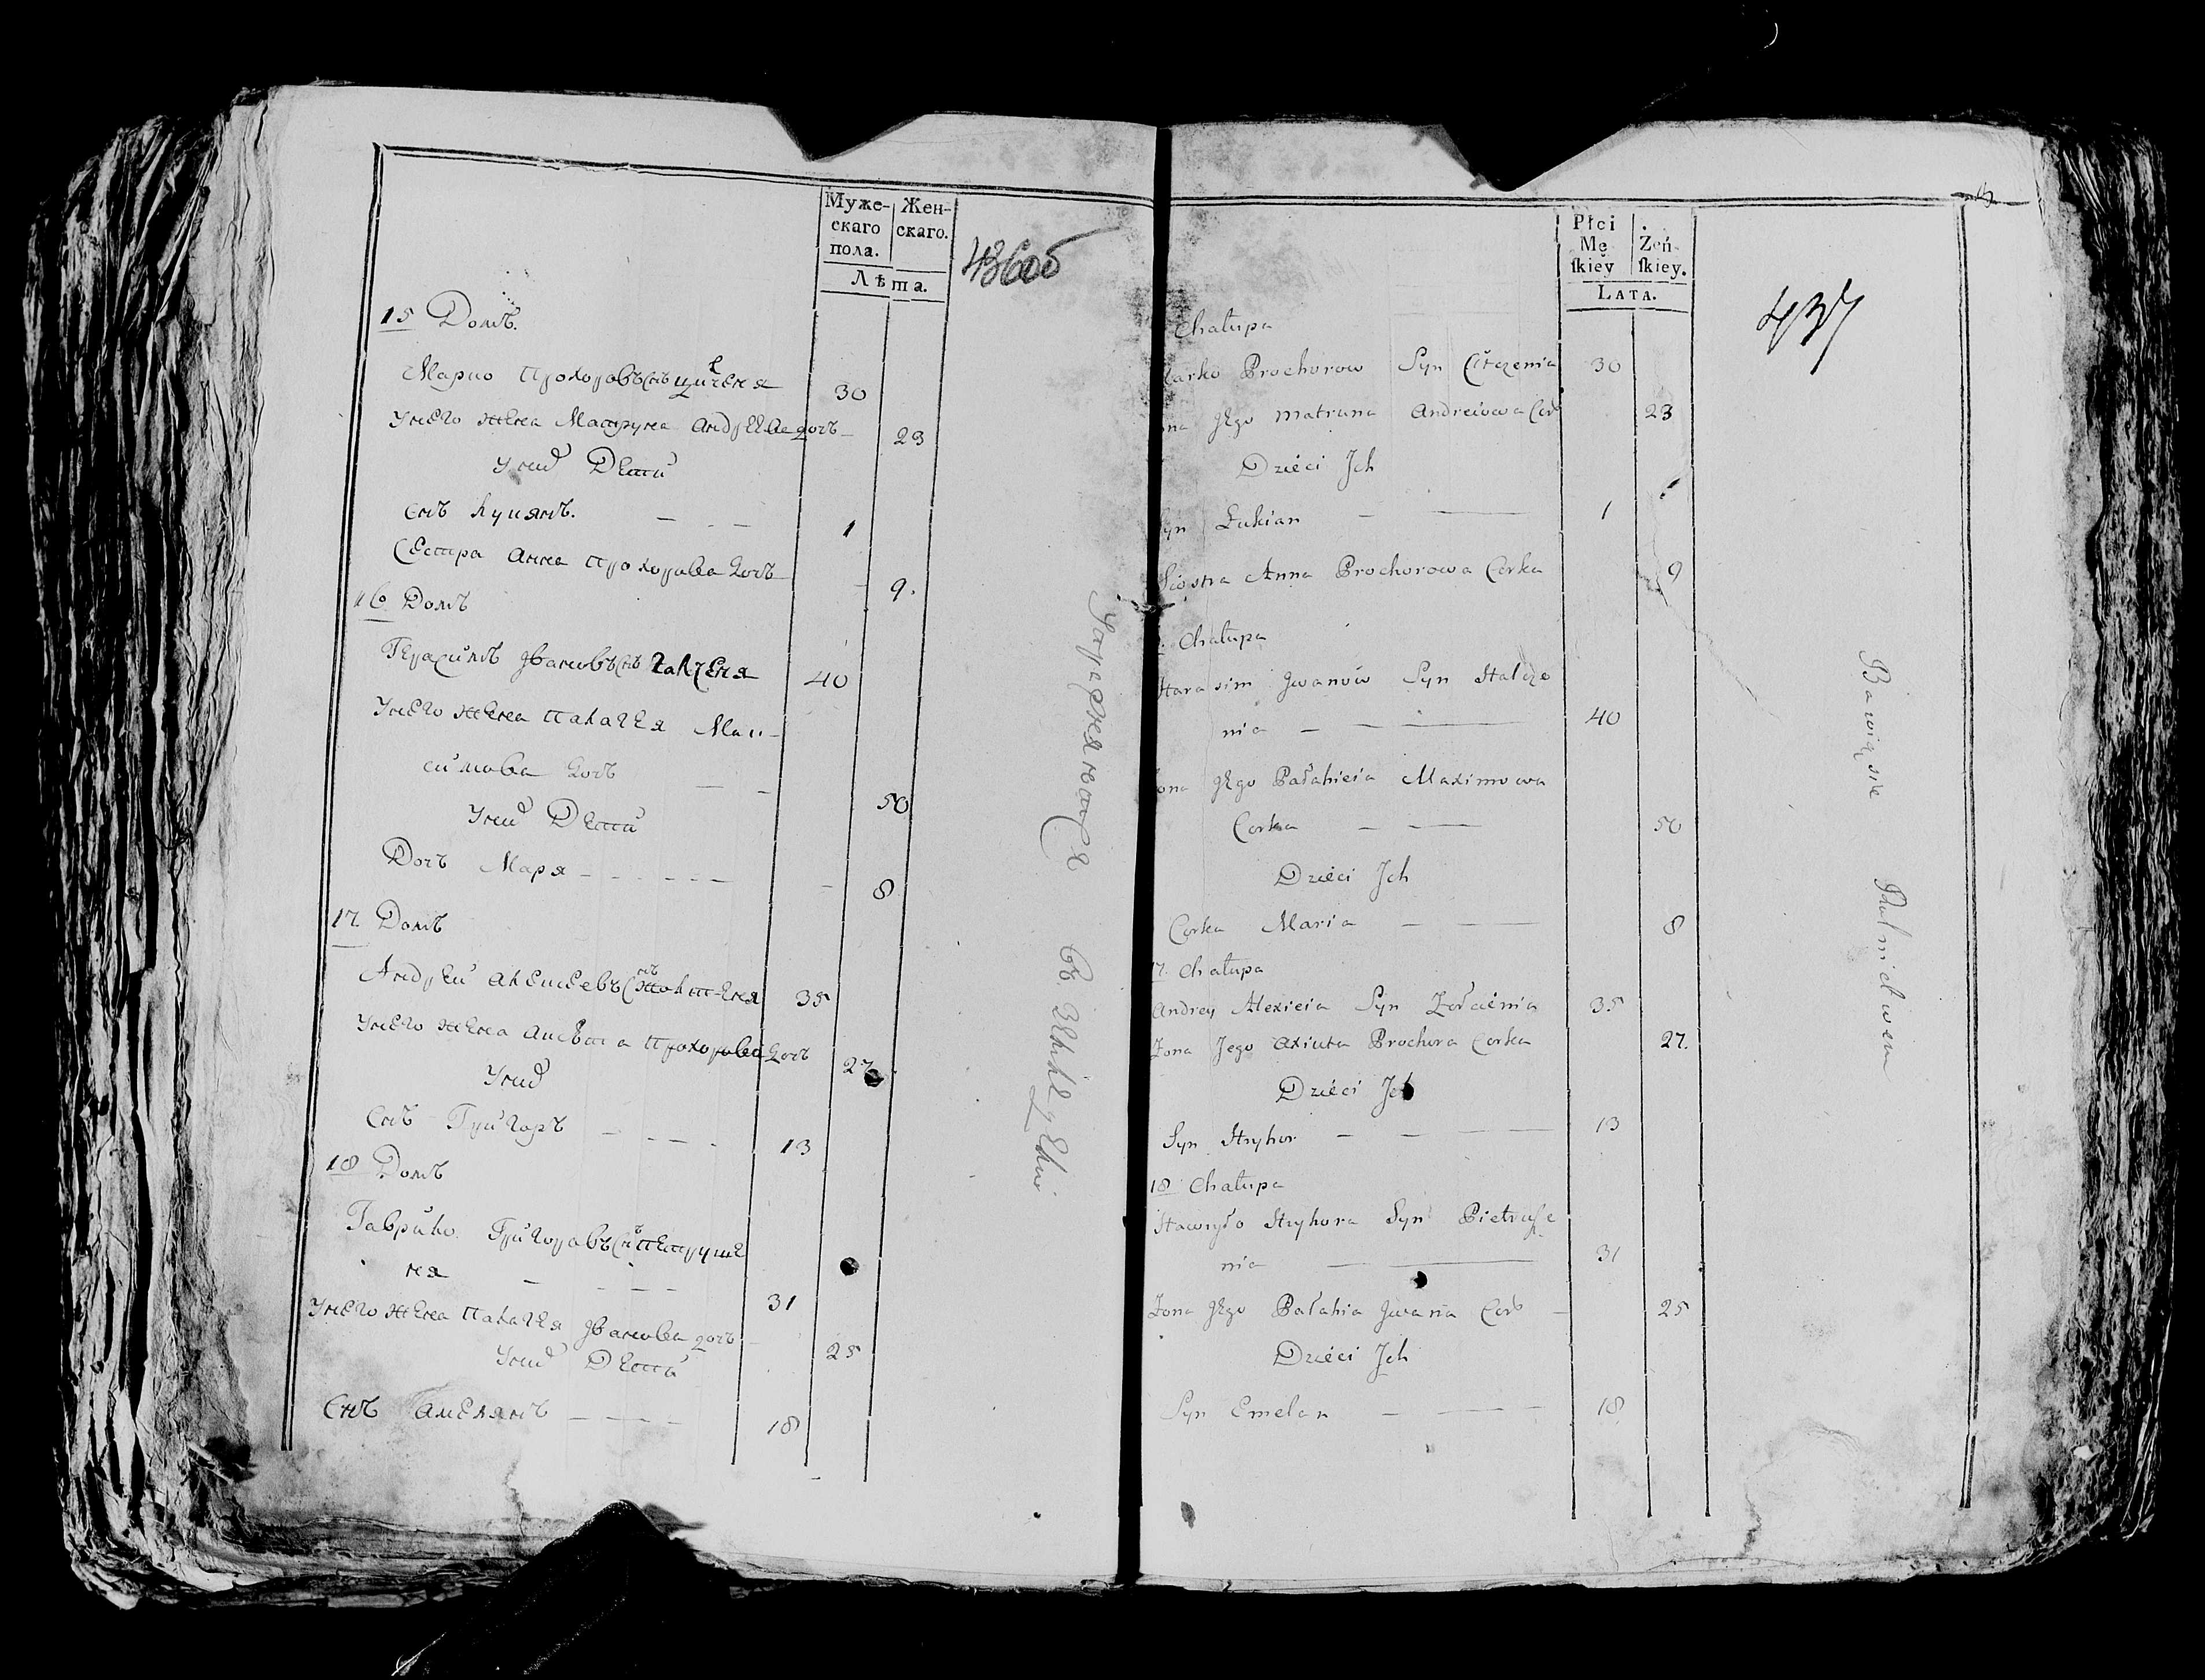 Муже-
скаго
пола.
Жен-
скаго.
Лѣта.
436об
15 Домъ.
Марко Прохоровъ Снъ 30
Унего жена Матруна Андреева дочъ 23
Уних Дети
Снъ Лукянъ. 1
Сестра Анна Прохорова Дочъ 9.
16 Домъ
Герасимъ Ивановъ Снъ Галченя 40
Унего жена Палагея Мак-
симова Дочъ 50
Уних Дети
Дочъ Маря 8
17 Домъ
Андрей Алексеевъ Снъ Жолтеня 35
Унего жена Аксюта Прохорова Дочъ 27
Уних
Снъ Григоръ 13
18 Домъ
Гаврило Григоровъ Снъ Петруше
ня 31
Унего жена Палагея Иванова дочъ 25
Уних Дети
Снъ Амелянъ 18
Упражняютса въ Земледелии
Płci
Mę
skiey
Żeń
skiey.
LATA.
437
Chałupa
arko Prochorow Syn 30
na Jego Matruna Andreiowa Cor 23
Dzieci Jch
Syn Łukian 1
Siostra Anna Prochorowa Corka 9
Chałupa
Harasim Jwanów Syn Halcze
nia 40
ona Jego Pałahieia Maximowa
Corka 50
Dzieci Jch
Corka Maria 8
17. Chałupa
Andrey Alexieia Syn Żołcienia 35
Żona Jego Axiuta Prochora Corka 27.
Dzieci Jch
Syn Hryhor 13
18 Chałupa
Hawryło Hryhora Syn Pietrusze
nia 31
Żona Jego Pałahia Jwana Cor 25
Dzieci Jch
Syn Emelan 18
Bawią się Rolnictwem